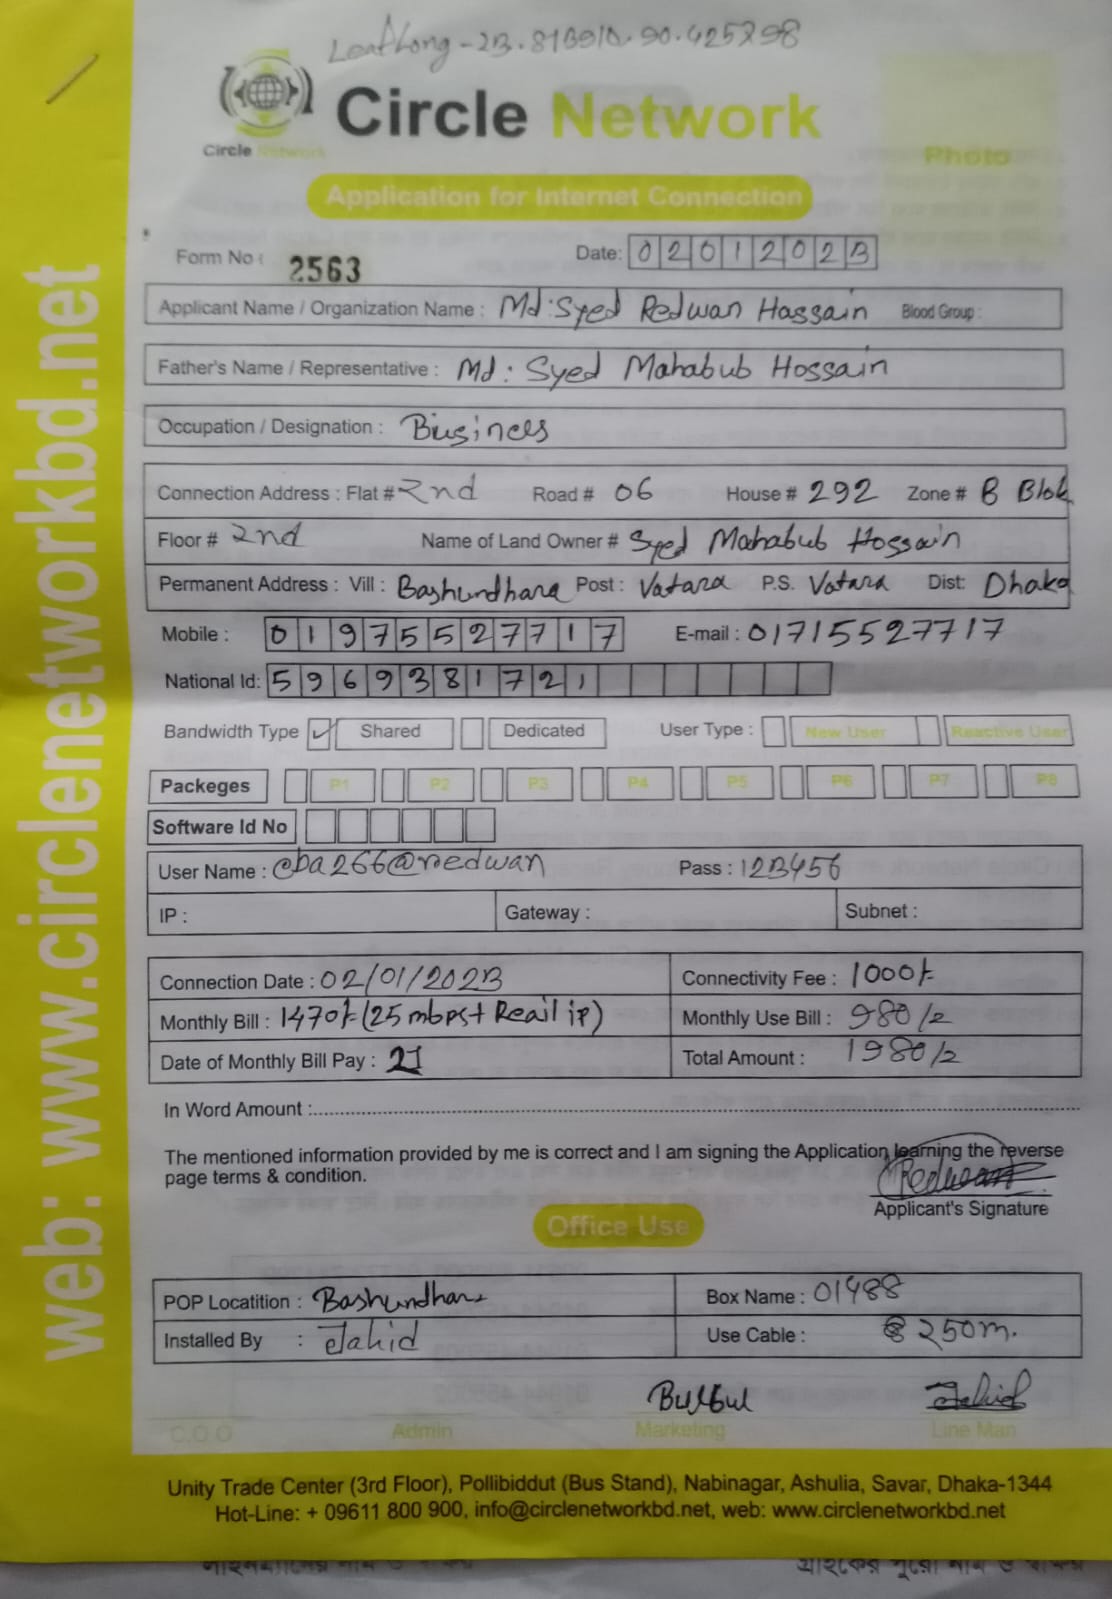 Circle Network
Circle Network
Photo
Application for Internet Connection
Form No : 2563
Date: 02012023
Applicant Name / Organization Name : Md: Syed Redwan Hassain Blood Group :
Father's Name / Representative : Md: Syed Mahabub Hossain
Occupation / Designation : Business
Connection Address : Flat # 2nd Road # 06 House # 292 Zone # B Blok
Floor # 2nd Name of Land Owner # Syed Mahabub Hossain
Permanent Address : Vill : Bashundhara Post : Vatara P.S. Vatara Dist: Dhaka
Mobile : 01975527717 E-mail : 01715527717
National Id: 5969381721
Bandwidth Type Shared Dedicated User Type : New User Reactive User
Packeges P1 P2 P3 P4 P5 P6 P7 P8
Software Id No
User Name : cba266@redwan Pass : 123456
IP : Gateway : Subnet :
Connection Date : 02/01/2023 Connectivity Fee : 1000/-
Monthly Bill : 1470/- (25 mbps+ Reail ip) Monthly Use Bill : 980/2
Date of Monthly Bill Pay : 21 Total Amount : 1980/2
In Word Amount :
The mentioned information provided by me is correct and I am signing the Application learning the reverse
page terms & condition.
Redwan
Applicant's Signature
Office Use
POP Locatition : Bashundhara Box Name : 01488
Installed By : Jahid Use Cable : 250m.
Bulbul Jahid
C.O.O Admin Marketing Line Man
Unity Trade Center (3rd Floor), Pollibiddut (Bus Stand), Nabinagar, Ashulia, Savar, Dhaka-1344
Hot-Line: + 09611 800 900, info@circlenetworkbd.net, web: www.circlenetworkbd.net
web: www.circlenetworkbd.net